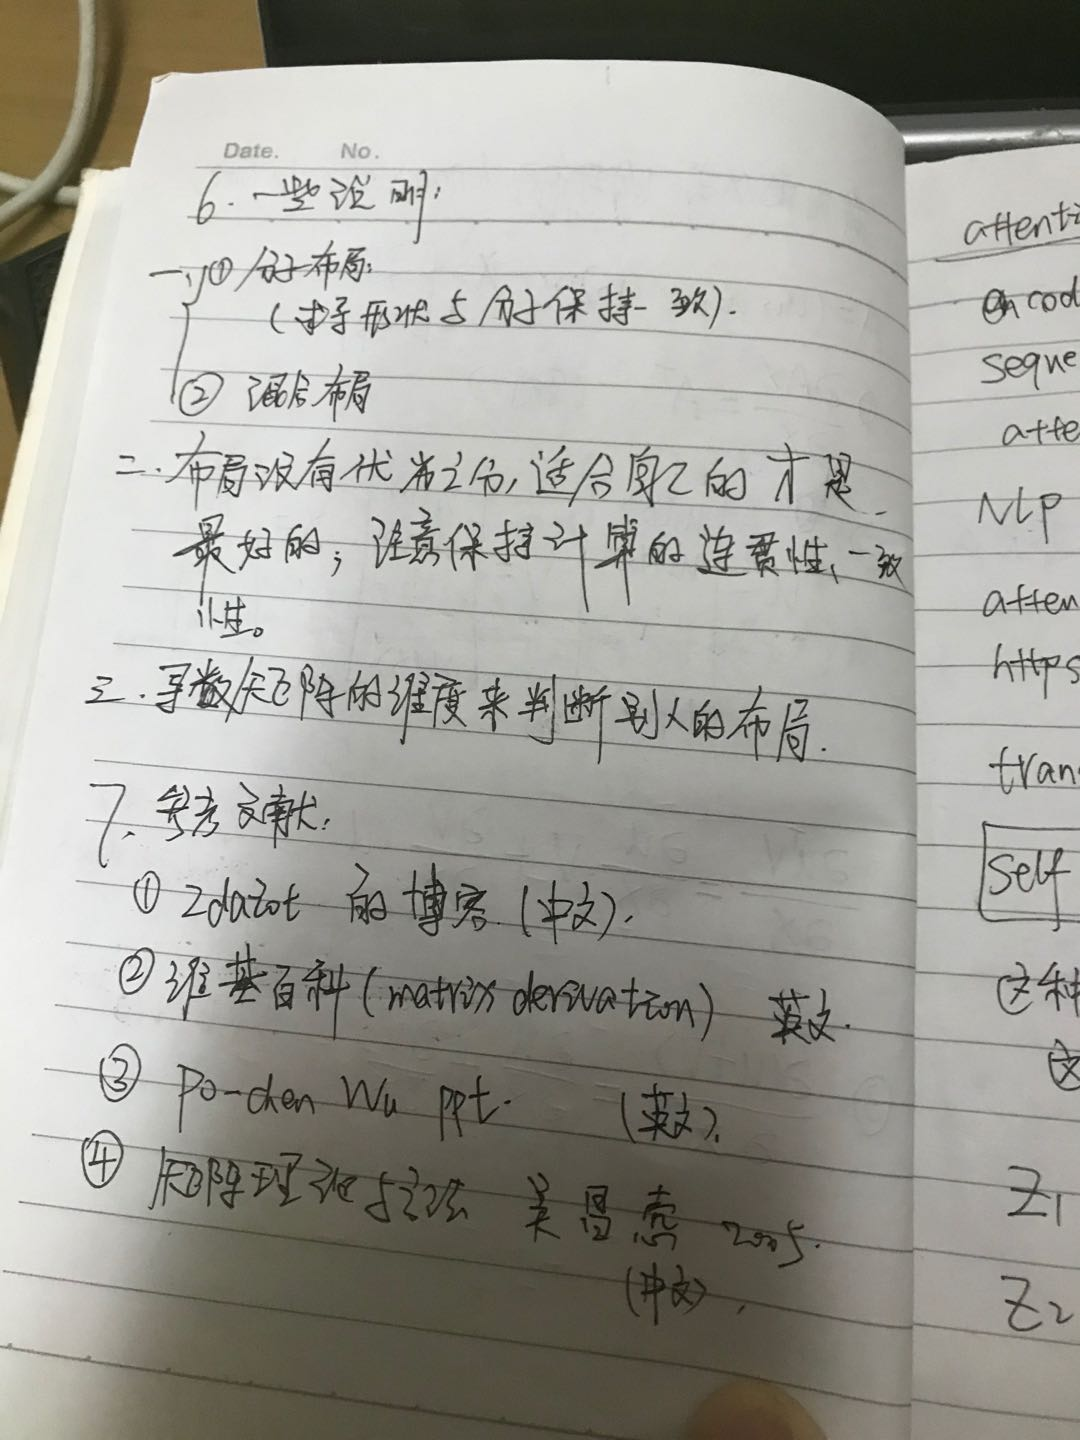 Date. No.
6. 一些说明:
一、① 分子布局:
(求导形状与分子保持一致).
② 混合布局
二. 布局没有优劣之分, 适合自己的才是
最好的; 注意保持计算的连贯性、一致
性。
三. 导数矩阵的维度来判断别人的布局.
7. 参考文献:
① Zdazot 的博客. (中文).
② 维基百科 (matrix derivation) 英文.
③ Po-chen Wu ppt. (英文).
④ 矩阵理论与方法 吴昌悫 2005.
(中文).
attenti
encod
seque
atte
NLP
atten
https
tran
self
这种
这
Z1
Z2